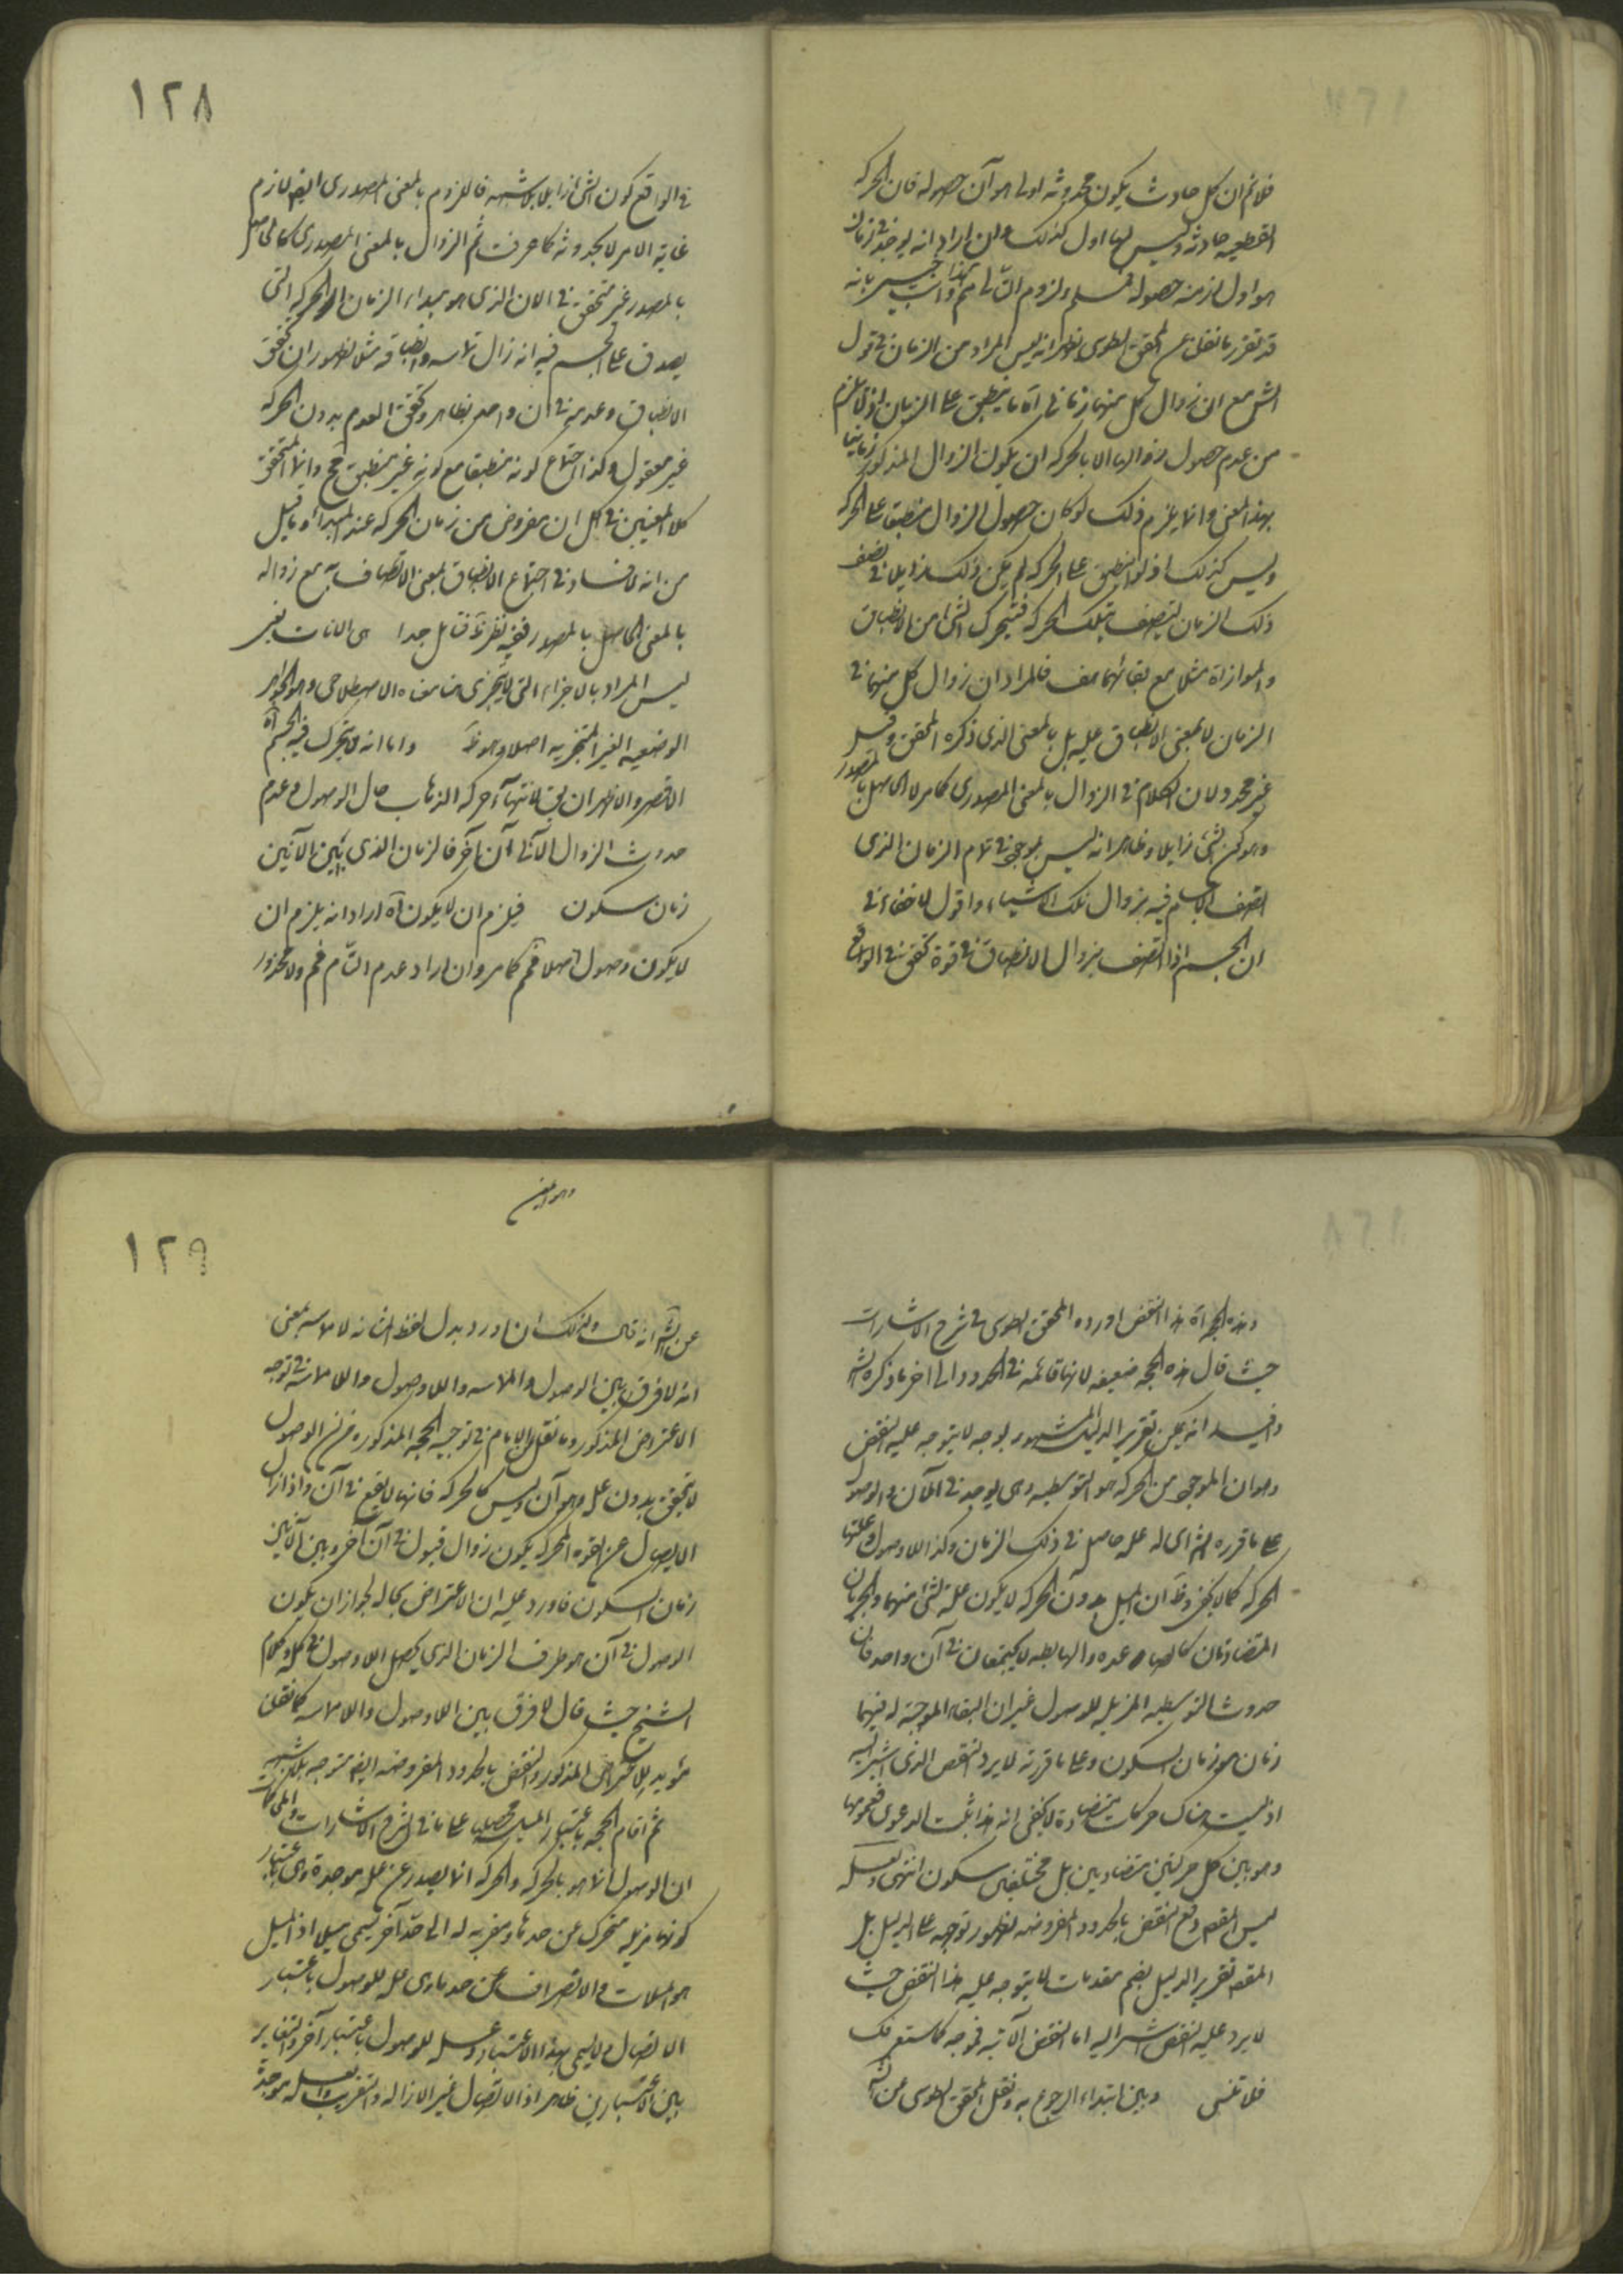 فلانم ان كل حادث يكون لحدوثه اول هو آن حصوله فان الحركة
القطعيه حادثة وليس لها اول كذلك وان اراد انه يوجد في زمان
هو اول ازمنة حصوله فمسلم ولزوم التالي مم واجيب بانه
قد تقرر بما نقل عن المحقق الطوسي وظهر انه ليس المراد من الزمان في قول
الش مع ان زوال كل منهما زماني آه ما ينطبق على الزمان
من عدم حصول زوالها الا بالحركه ان يكون الزوال المذكور زمانيا
بهذا المعنى وانما يلزم ذلك لو كان حصول الزوال منطبقا على الحركه
وليس كذلك اذ لو انطبق على الحركه لم يكن ذلك زايلا في نصف
ذلك الزمان ليتصف بتلك الحركه فيتحرك الشئ من الانطباق
والموازاة مثلا مع بقائهما هف فالمراد ان زوال كل منهما في
الزمان لا بمعنى الانطباق عليه بل بالمعنى الذي ذكره المحقق وقيل
غير محدود لان الكلام في الزوال بالمعنى المصدري كما مر لا الحاصل بالمصدر
وهو كون الشئ زايلا وظاهر انه ليس بموجود في تمام الزمان الذي
اتصف الجسم فيه بزوال تلك الاشياء واقول لا خفاء في
ان الجسم اذا اتصف بزوال الانطباق في قوة تحقق في الواقع
١٢٨
في الواقع كون الشئ زايلا بلا شبهه فاللزوم بالمعنى المصدري ايضا لازم
غاية الامر لا بحدوثه كما عرفت ثم الزوال بالمعنى المصدري كالحاصل
بالمصدر غير متحقق في الان الذي هو مبداء الزمان والحركه التي
يصدق على الجسم فيه انه زال تماسه وانطباقه مثلا لظهور ان تحقق
الانطباق وعدمه في آن واحد بظاهر وتحقق العدم بدون الحركه
غير معقول وكذا اجتماع كونه منطبقا مع كونه غير منطبق مح وانما المتحقق
كلا المعنيين في كل ان مفروض من زمان الحركه عند المبداء وما قيل
من انه لا فساد في اجتماع الانطباق بمعنى الاتصاف به مع زواله
بالمعنى الحاصل بالمصدر ففيه نظر فتامل جدا
ليس المراد بالاجزاء التي لا يتجزى هنا معناه الاصطلاحي وهو الجواهر
الوضعيه الغير المتجزيه اصلا وهو ظ واما انه لا يتحرك فيه الجسم آه
الاقصر والاظهر ان يق لانتهآء حركه الذهاب حال الوصول وعدم
حدوث الزوال الا في آن آخر فالزمان الذي بين الآنين
زمان سكون فيلزم ان لا يكون آه اراد انه يلزم ان
لا يكون وصول اصلا فمم كما مر وان اراد عدم التام فمم ولا محذور
وهذه الحجه آه هذا النقض اورده المحقق الطوسي في شرح الاشارات
حيث قال هذه الحجه ضعيفه لانها قائمه في الحدود الى اخر ما ذكره الش
وافيد انه يمكن تقرير الدليل المشهور بوجه لا يتوجه عليه النقض
وهو ان الموجود من الحركه هو التوسطيه وهي يوجد في الآن والوصول
على ما قرره الش اى له علة حاصل في ذلك الزمان وكذا اللاوصول وعلتها
الحركه كما لا يخفى وظ ان الميل دون الحركه لا يكون علة لشئ منهما والحركتان
المتضادتان كالصاعده والهابطه لا يجتمعان في آن واحد فان
حدوث التوسطيه المزيله للوصول غير ان البقاء الموجبة له فبينهما
زمان هو زمان السكون وعلى ما قررته لا يرد النقض الذي اشير اليه
اذ ليست هناك حركات متضادة لا يخفى انه هذا يثبت الدعوى فعمومها
وهو بين كل حركتين متضادين بل مختلفين سكون انتهى ولعله
ليس المقص دفع النقض بالحدود المفروضه لظهور توجهه على الدليل بل
المقص تقرير الدليل بضم مقدمات لا يتوجه عليه هذا النقض حيث
لا يرد عليه النقض اشير اليه اما النقض الآتيه فموجه كما ستعرفك
فلا تنس وبين ابتداء الرجوع به ونقل المحقق الطوسي عن الش
وهو ايض
١٢٩
عن الش انه قال ولذلك ان اورد بدل لفظ المباينه لا مماسه بمعنى
انه لا فرق بين الوصول والمماسه واللاوصول واللامماسة في توجه
الاعتراض المذكور وما نقل الامام في توجيه الحجه المذكوره من ان الوصول
لا يتحقق بدون علة وهو آن وليس كالحركه فانها لا يقع في آن واذا زال
الايصال عن القوه المحركه يكون زوال قبول في آن آخر وبين الآنين
زمان السكون فاورد عليه ان الاعتراض بحاله لجواز ان يكون
الوصول في آن هو طرف الزمان الذي يحصل اللاوصول في كله وكلام
الشيخ حيث قال لا فرق بين اللاوصول واللامماسه كما نقلنا
مؤيد للاعتراض المذكور والنقض بالحدود المفروضه ايضا متوجه بلا شبهه
ثم اقام الحجه باعتبار الميل محصلها على ما في شرح الاشارات والمحاكمات
ان الوصول انما هو بالحركه والحركه انما يصدر عن علة موجدة وهي باعتبار
كونها مزيلة متحرك عن حد ما ومقربه له الى حد آخر يسمى ميلا اذ الميل
هو الميلان والانصراف عن حد ما وهي علة للوصول باعتبار
الاتصال ولا يسمى بهذا الاعتبار وعلة للوصول باعتبار آخر والتغاير
بين الاعتبارين ظاهر اذ الاتصال غير الازاله والتقريب والعلة موجدة